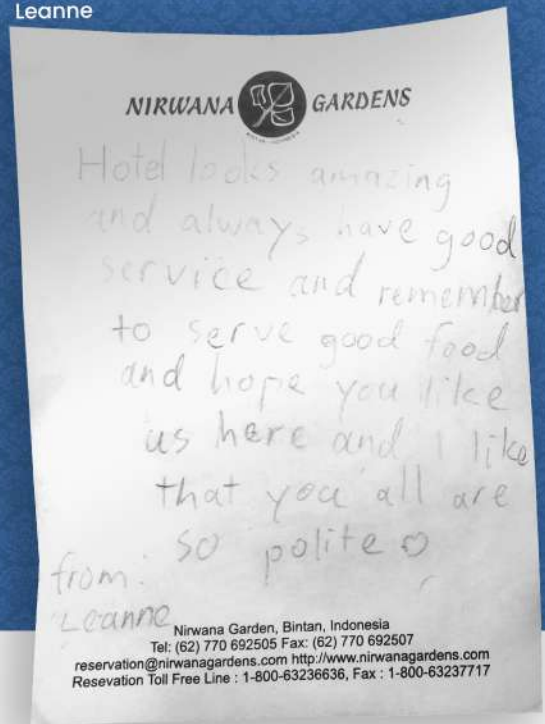 Leanne
NIRWANA GARDENS
Hotel looks amazing
and always have good
service and remember
to serve good food
and hope you like
us here and I like
that you all are
so polite ♡
from:
Leanne
Nirwana Garden, Bintan, Indonesia
Tel: (62) 770 692505 Fax: (62) 770 692507
reservation@nirwanagardens.com http://www.nirwanagardens.com
Resevation Toll Free Line : 1-800-63236636, Fax : 1-800-63237717